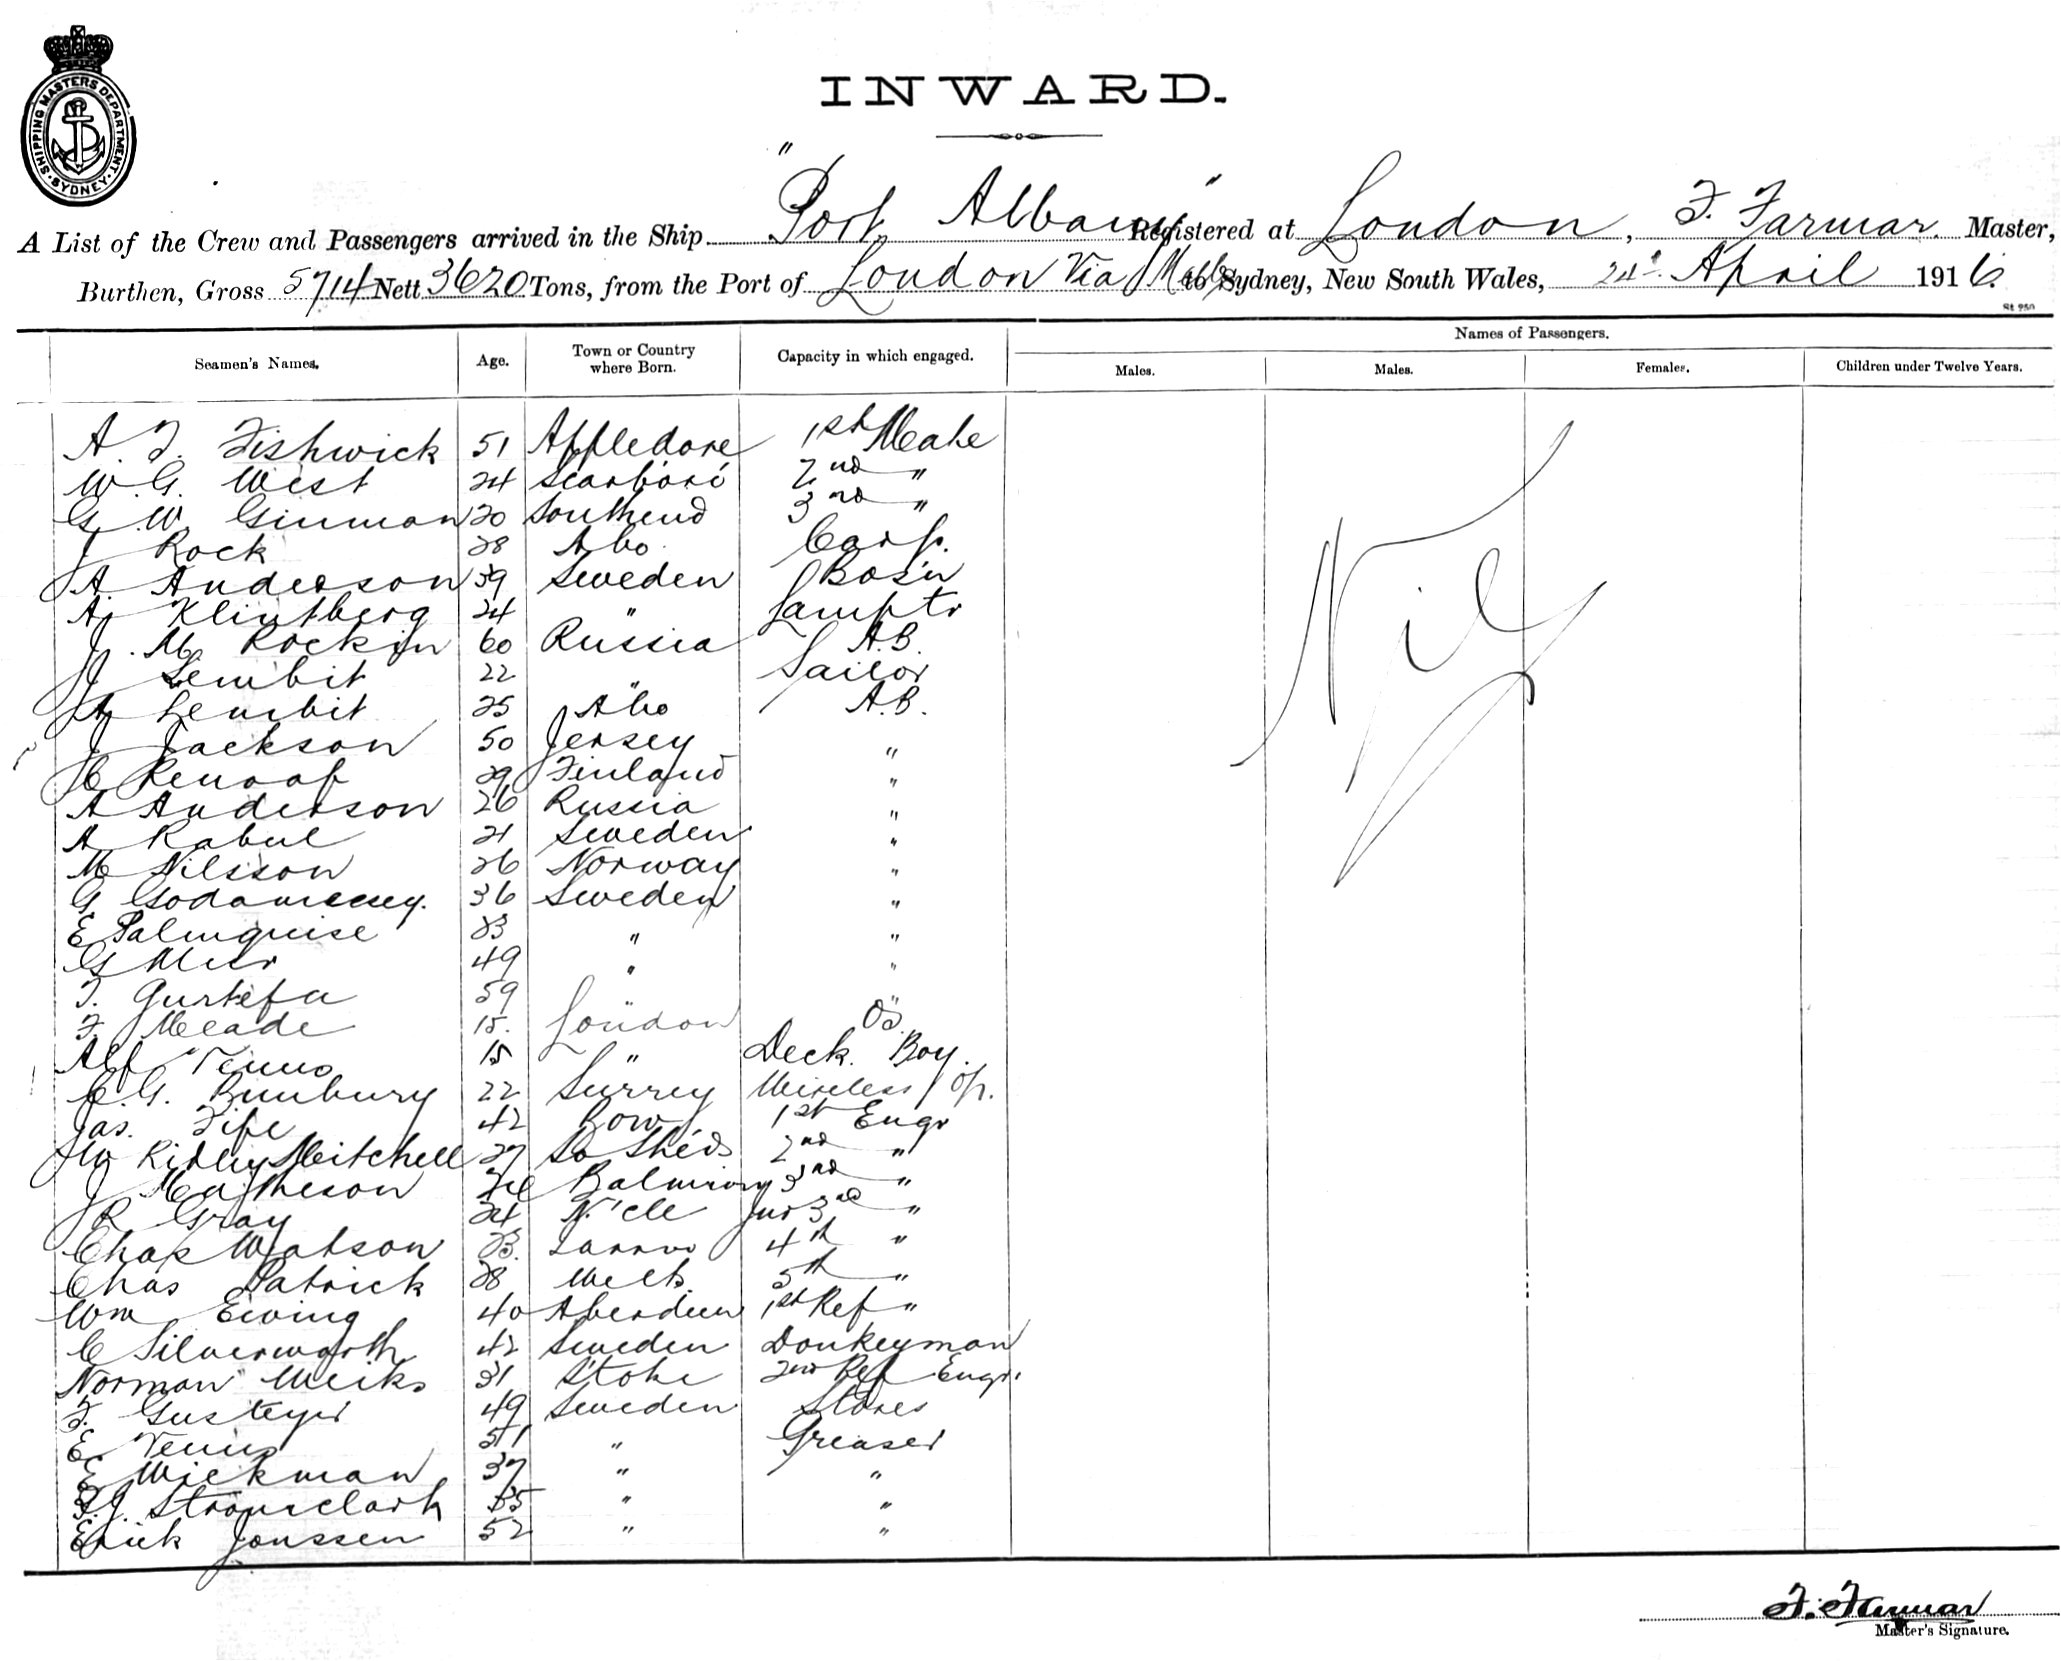 SHIPPING MASTERS DEPARTMENT · SYDNEY ·
INWARD.
A List of the Crew and Passengers arrived in the Ship "Port Albany" Registered at London, F. Farmar Master,
Burthen, Gross 5714 Nett 3620 Tons, from the Port of London Via Melb to Sydney, New South Wales, 24 April 1916.
Names of Passengers.
Seamen's Names. Age. Town or Country where Born. Capacity in which engaged. Males. Males. Females. Children under Twelve Years.
A. F. Fishwick 51 Appledore 1st Mate
W. G. West 24 Scarboro' 2nd "
G. W. Ginman 20 Southend 3rd "
J Rock 28 Abo Carp.
A. Anderson 39 Sweden Bos'n
A. Klintberg 24 " Lamptr
J. M. Rockin 60 Russia A.B.
J Lembit 22 " Sailor
A Lembit 25 Abo A.B.
J Jackson 50 Jersey "
C Renoof 29 Finland "
A Anderson 26 Russia "
A Kabul 21 Sweden "
M Nilsson 26 Norway "
G 36 Sweden "
E Palmquise 23 " "
G Muir 49 " "
F. 59 " "
F. Meade 15. London OS.
Alf Venus 15 " Deck Boy.
C. G. Bunbury 22 Surrey Wireless Op.
Jas. Fife 42 Bow 1st Engr
Jw Ridley Mitchell 27 So Sheds 2nd "
J Matheson Balmony 3rd "
R Gray 24 N'cle Jnr 3rd "
Chas Watson 23. Jarrow 4th "
Chas Patrick 28 Wilts. 5th "
Wm Ewing 40 Aberdeen 1st Ref "
C Silverworth 42 Sweden Donkeyman
Norman Weiks 31 Stoke 2nd Ref Engr.
F. 49 Sweden Stores
E Venus 51 " Greaser
E Wickman 37 " "
F. J. 55 " "
Erick Jonssen 52 " "
Nil
F. Farmar
Master's Signature.